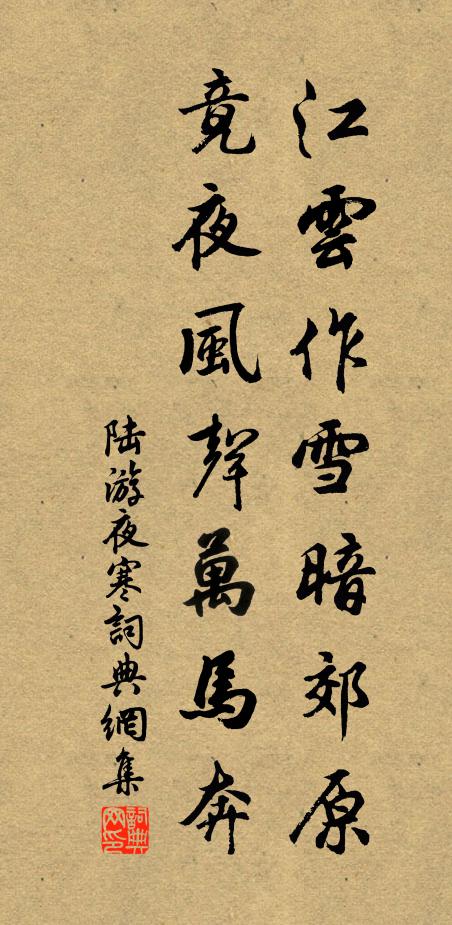 江雲作雪暗郊原
竟夜風聲萬馬奔
陆游夜寒詞典網集
詞典网印